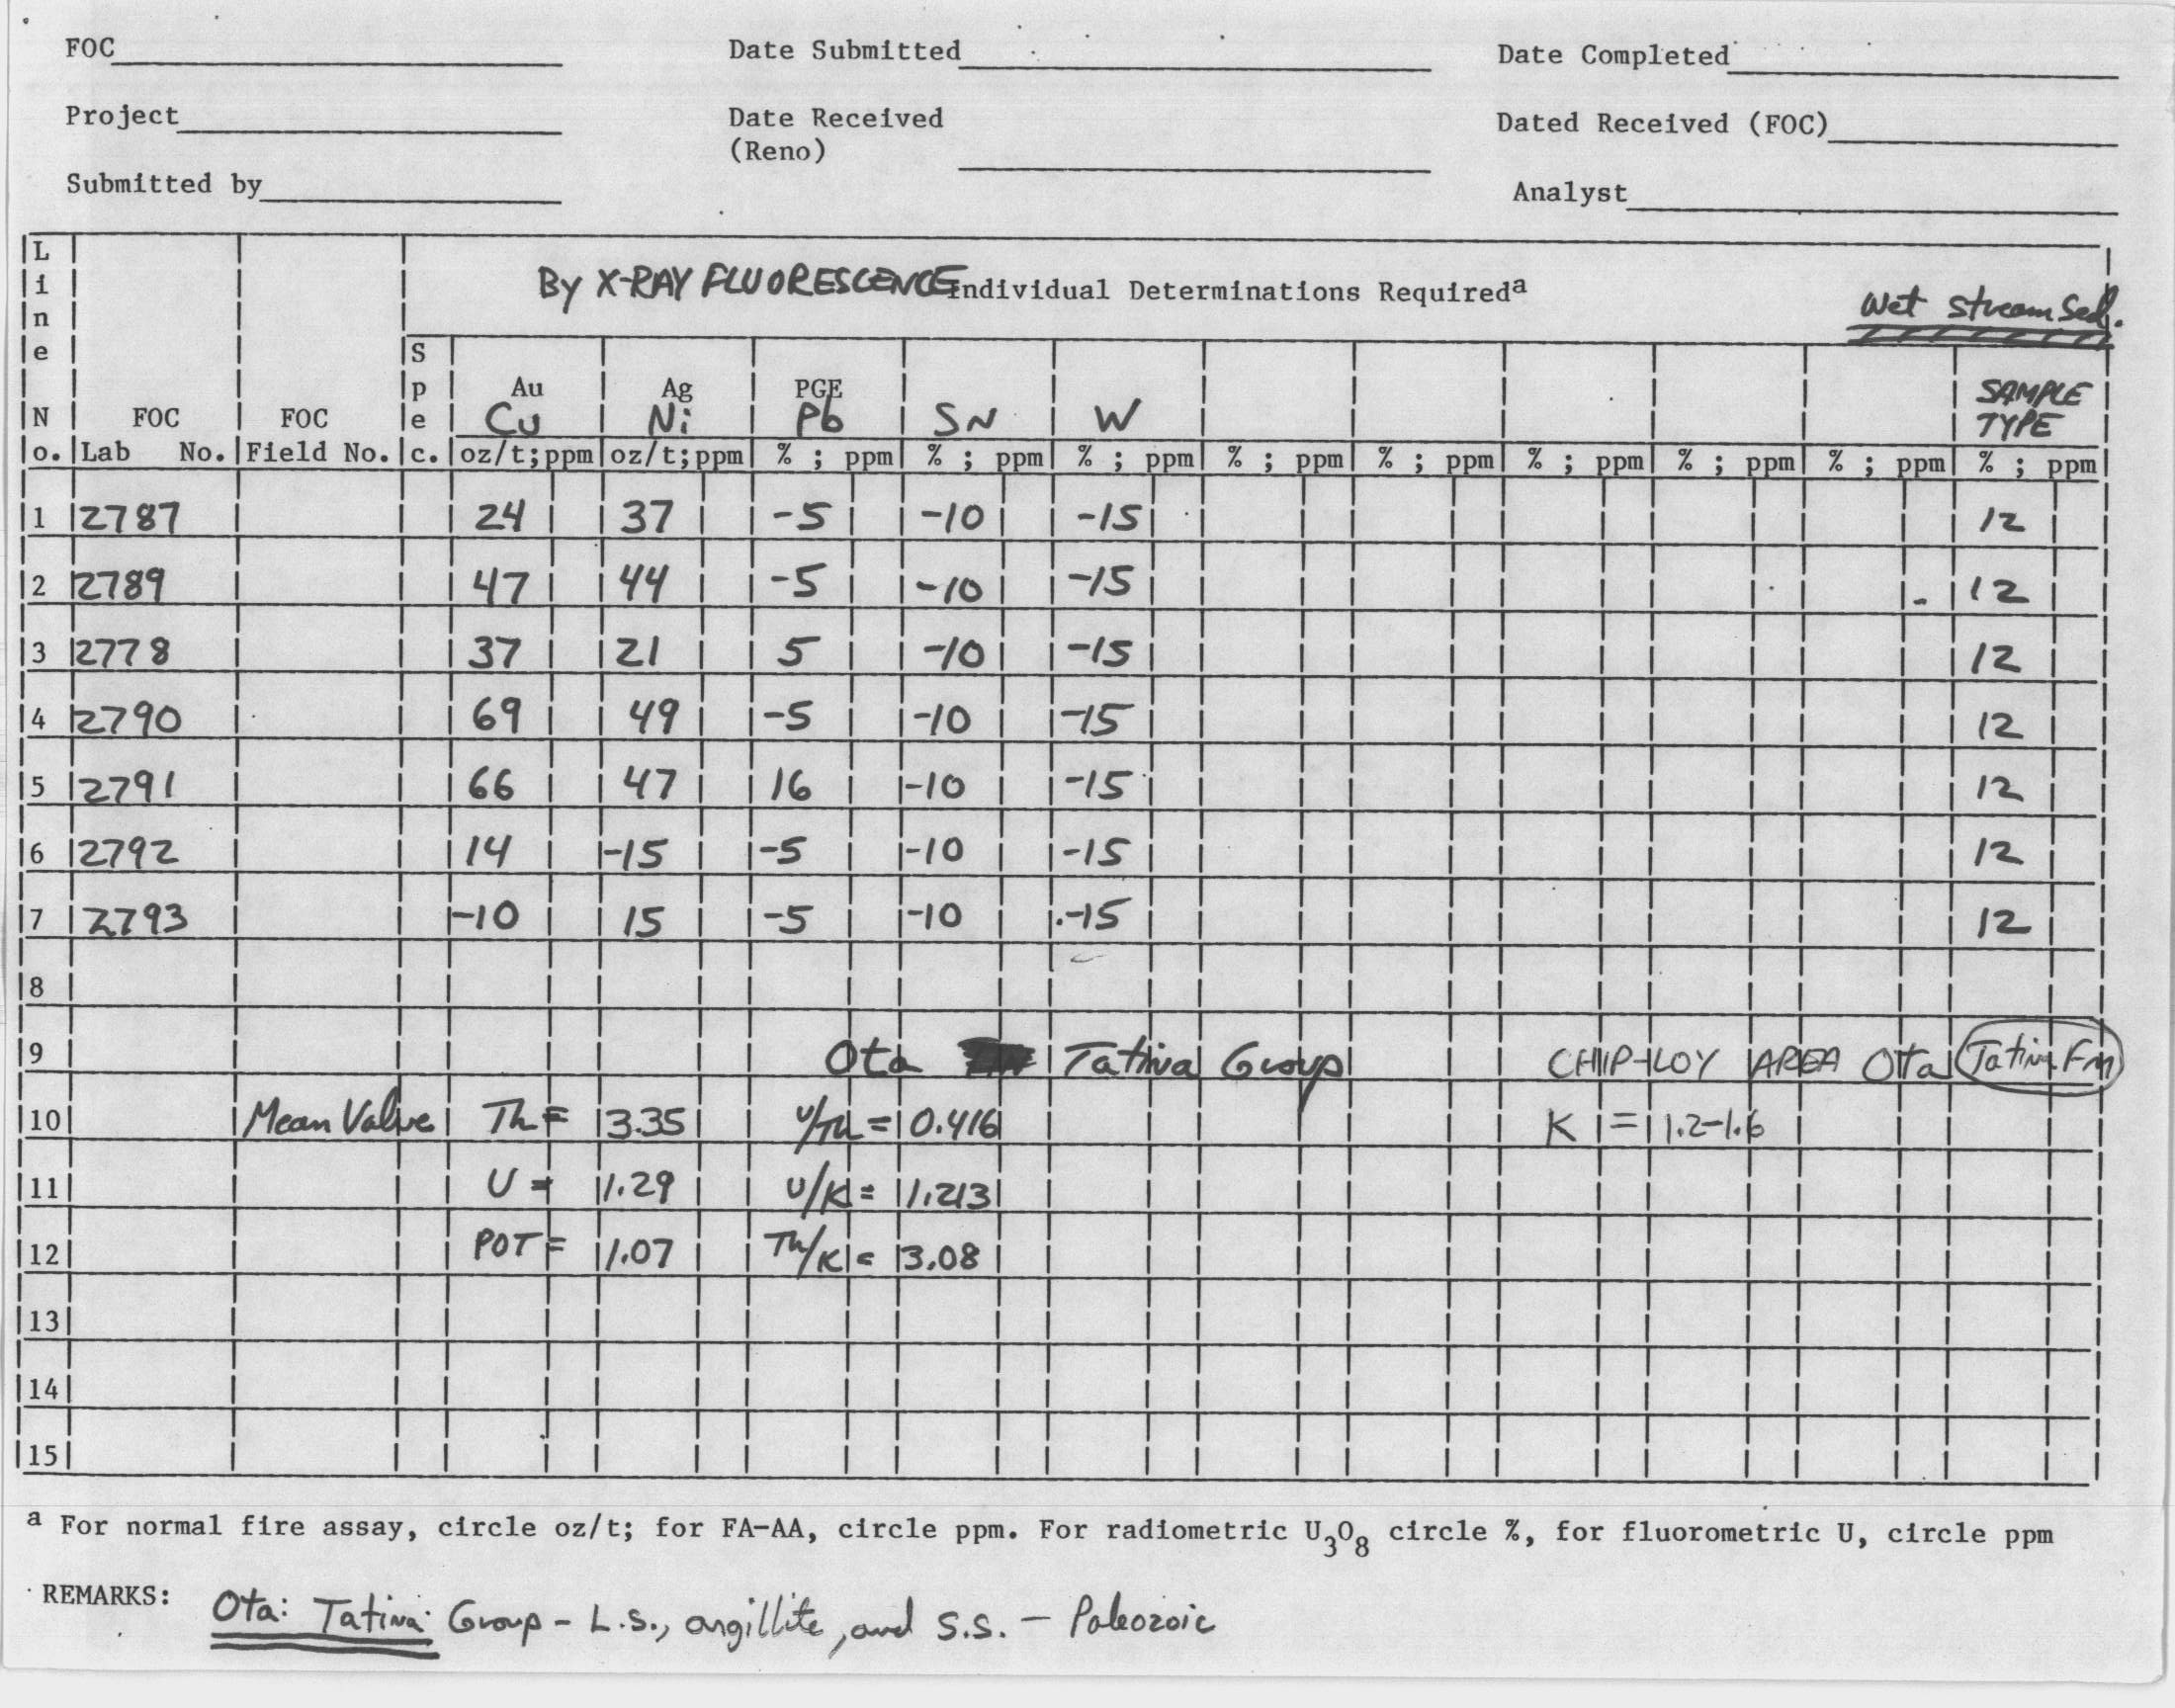 FOC Date Submitted Date Completed
Project Date Received Dated Received (FOC)
(Reno)
Submitted by Analyst
Line No. FOC Lab No. FOC Field No. Spec. By X-RAY FLUORESCENCE Individual Determinations Required a
Wet Stream Sed.
Au Ag PGE SAMPLE
Cu Ni Pb SN W TYPE
oz/t;ppm oz/t;ppm % ; ppm % ; ppm % ; ppm % ; ppm % ; ppm % ; ppm % ; ppm % ; ppm % ; ppm
1 2787 24 37 -5 -10 -15 12
2 2789 47 44 -5 -10 -15 12
3 2778 37 21 5 -10 -15 12
4 2790 69 49 -5 -10 -15 12
5 2791 66 47 16 -10 -15 12
6 2792 14 -15 -5 -10 -15 12
7 2793 -10 15 -5 -10 -15 12
8
9 Ota Tatina Group AREA Ota Tatina Fm
10 Mean Value Th = 3.35 U/Th = 0.416 K = 1.2-1.6
11 U = 1.29 U/K = 1.213
12 POT = 1.07 Th/K = 3.08
13
14
15
a For normal fire assay, circle oz/t; for FA-AA, circle ppm. For radiometric U3O8 circle %, for fluorometric U, circle ppm
REMARKS: Ota: Tatina Group - L.S., argillite, and S.S. - Paleozoic